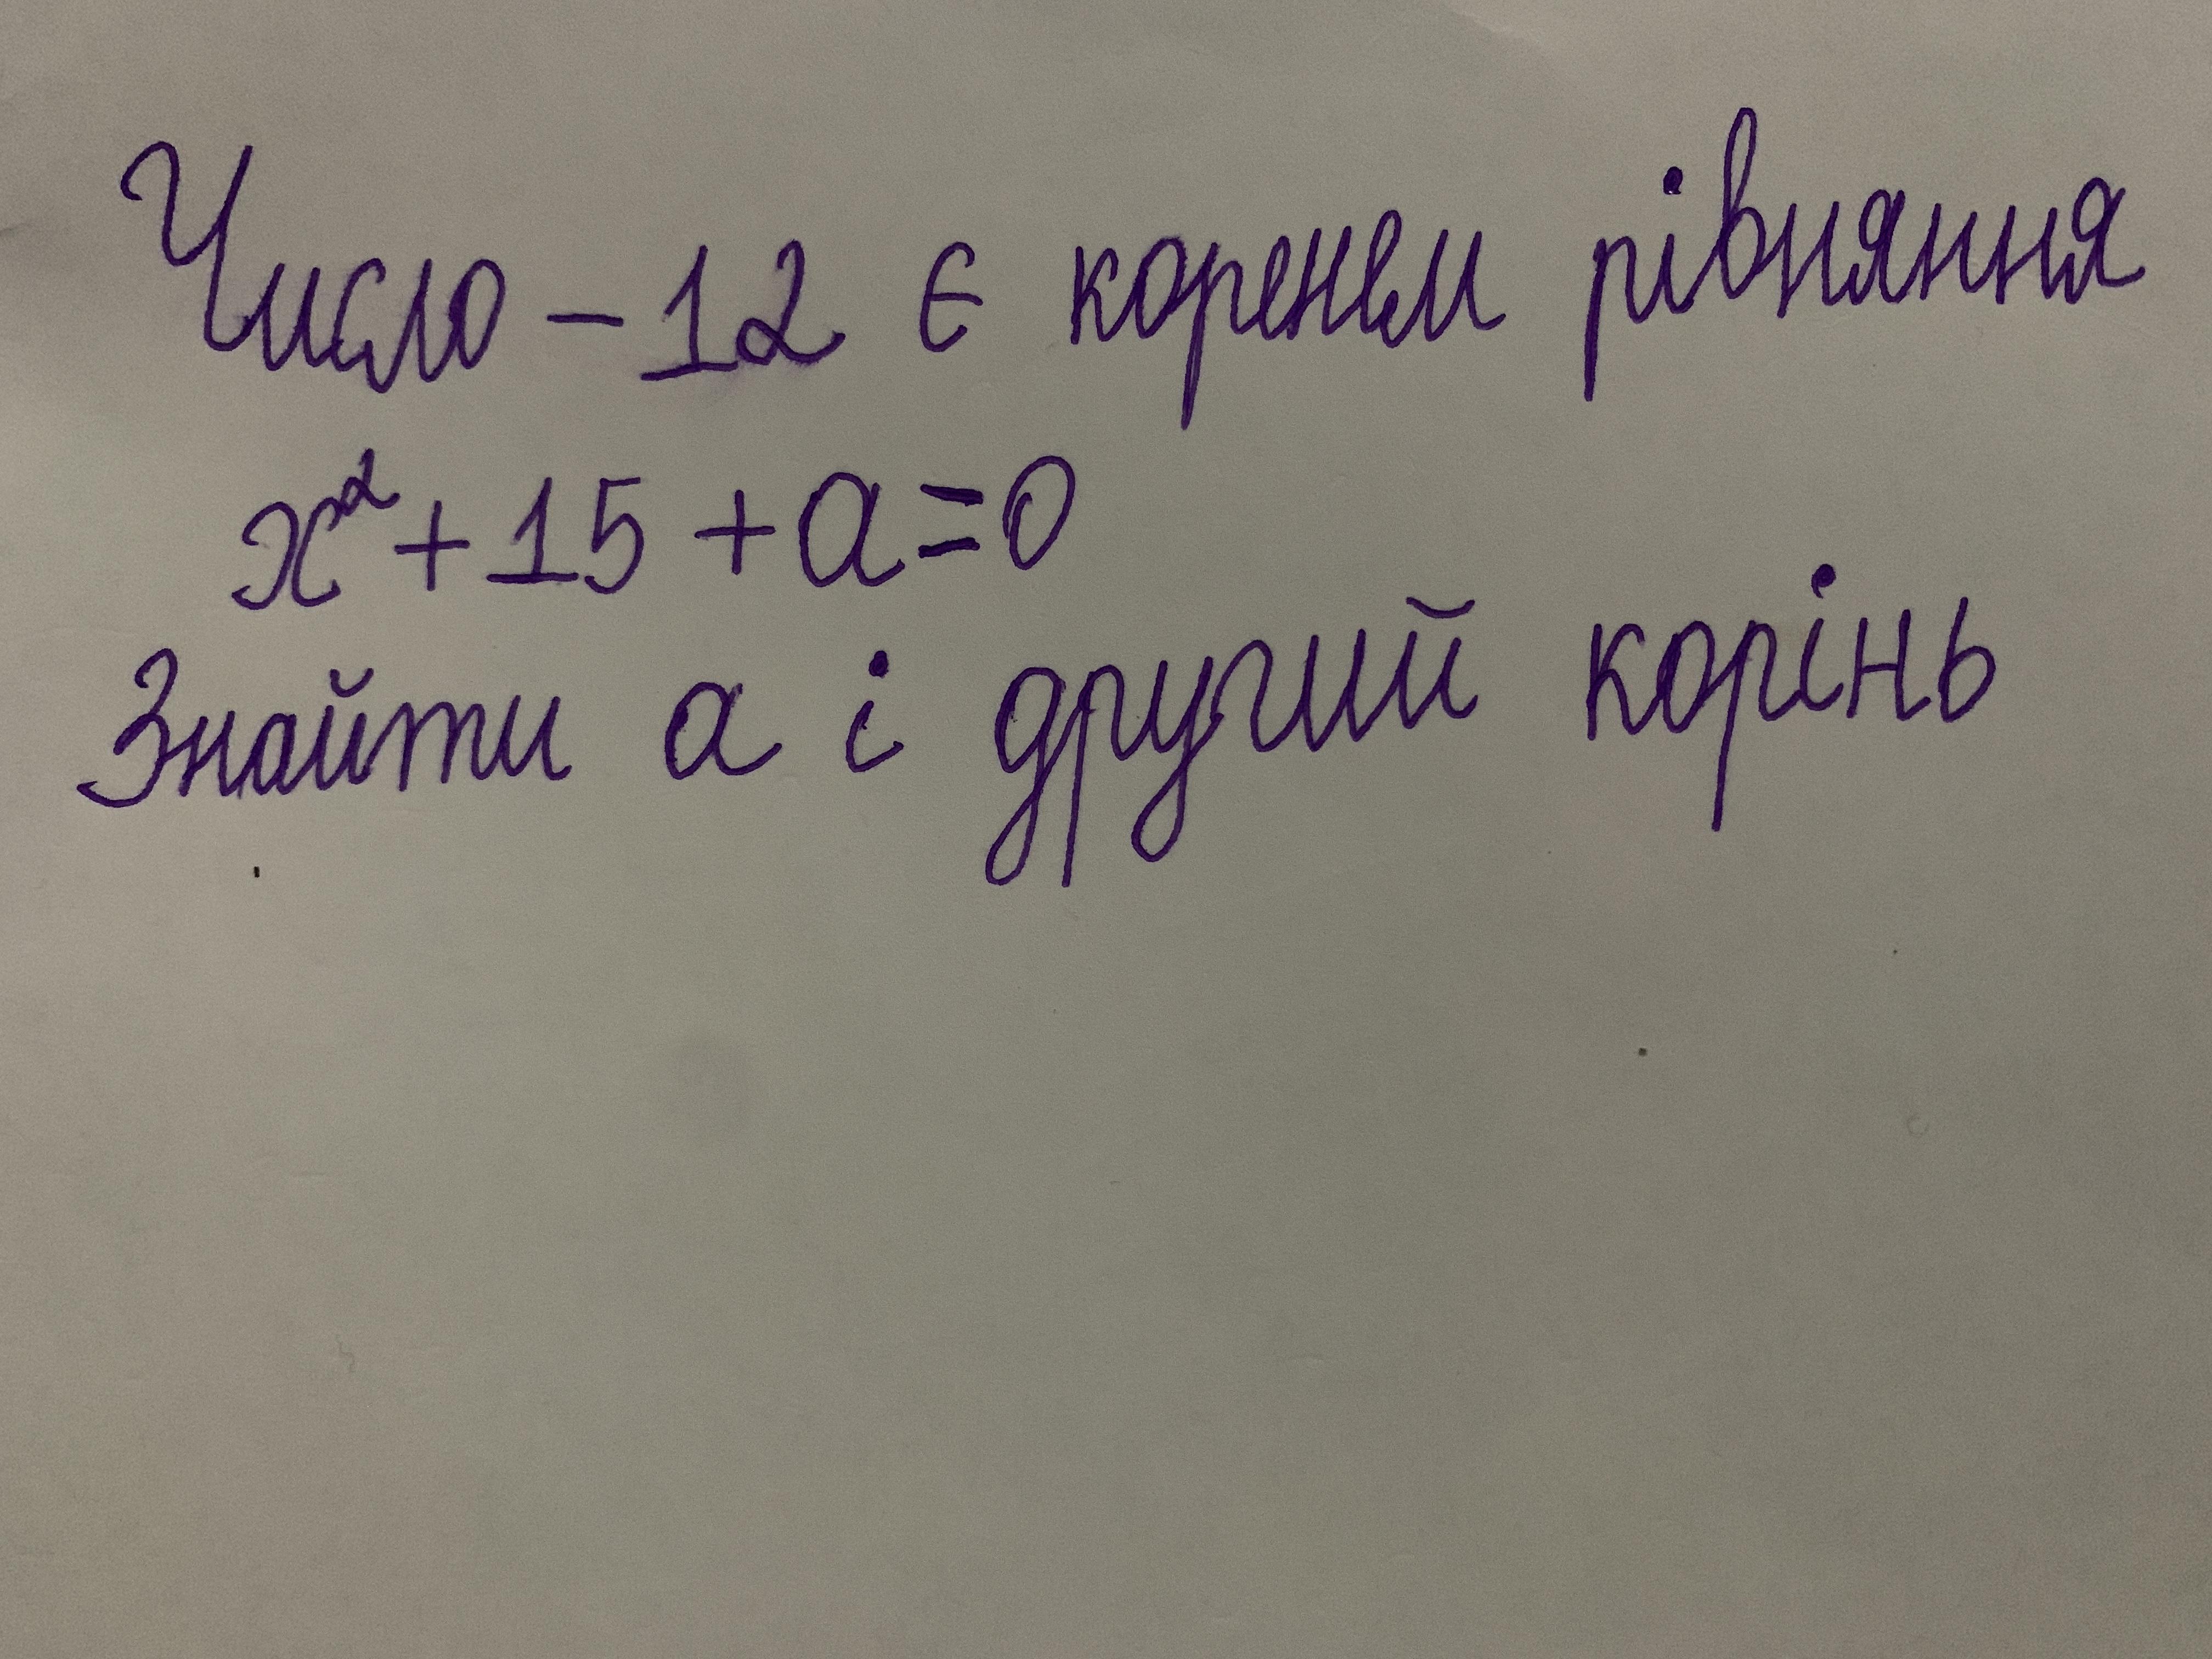 Число -12 є коренем рівняння
x² + 15 + a = 0
Знайти a і другий корінь